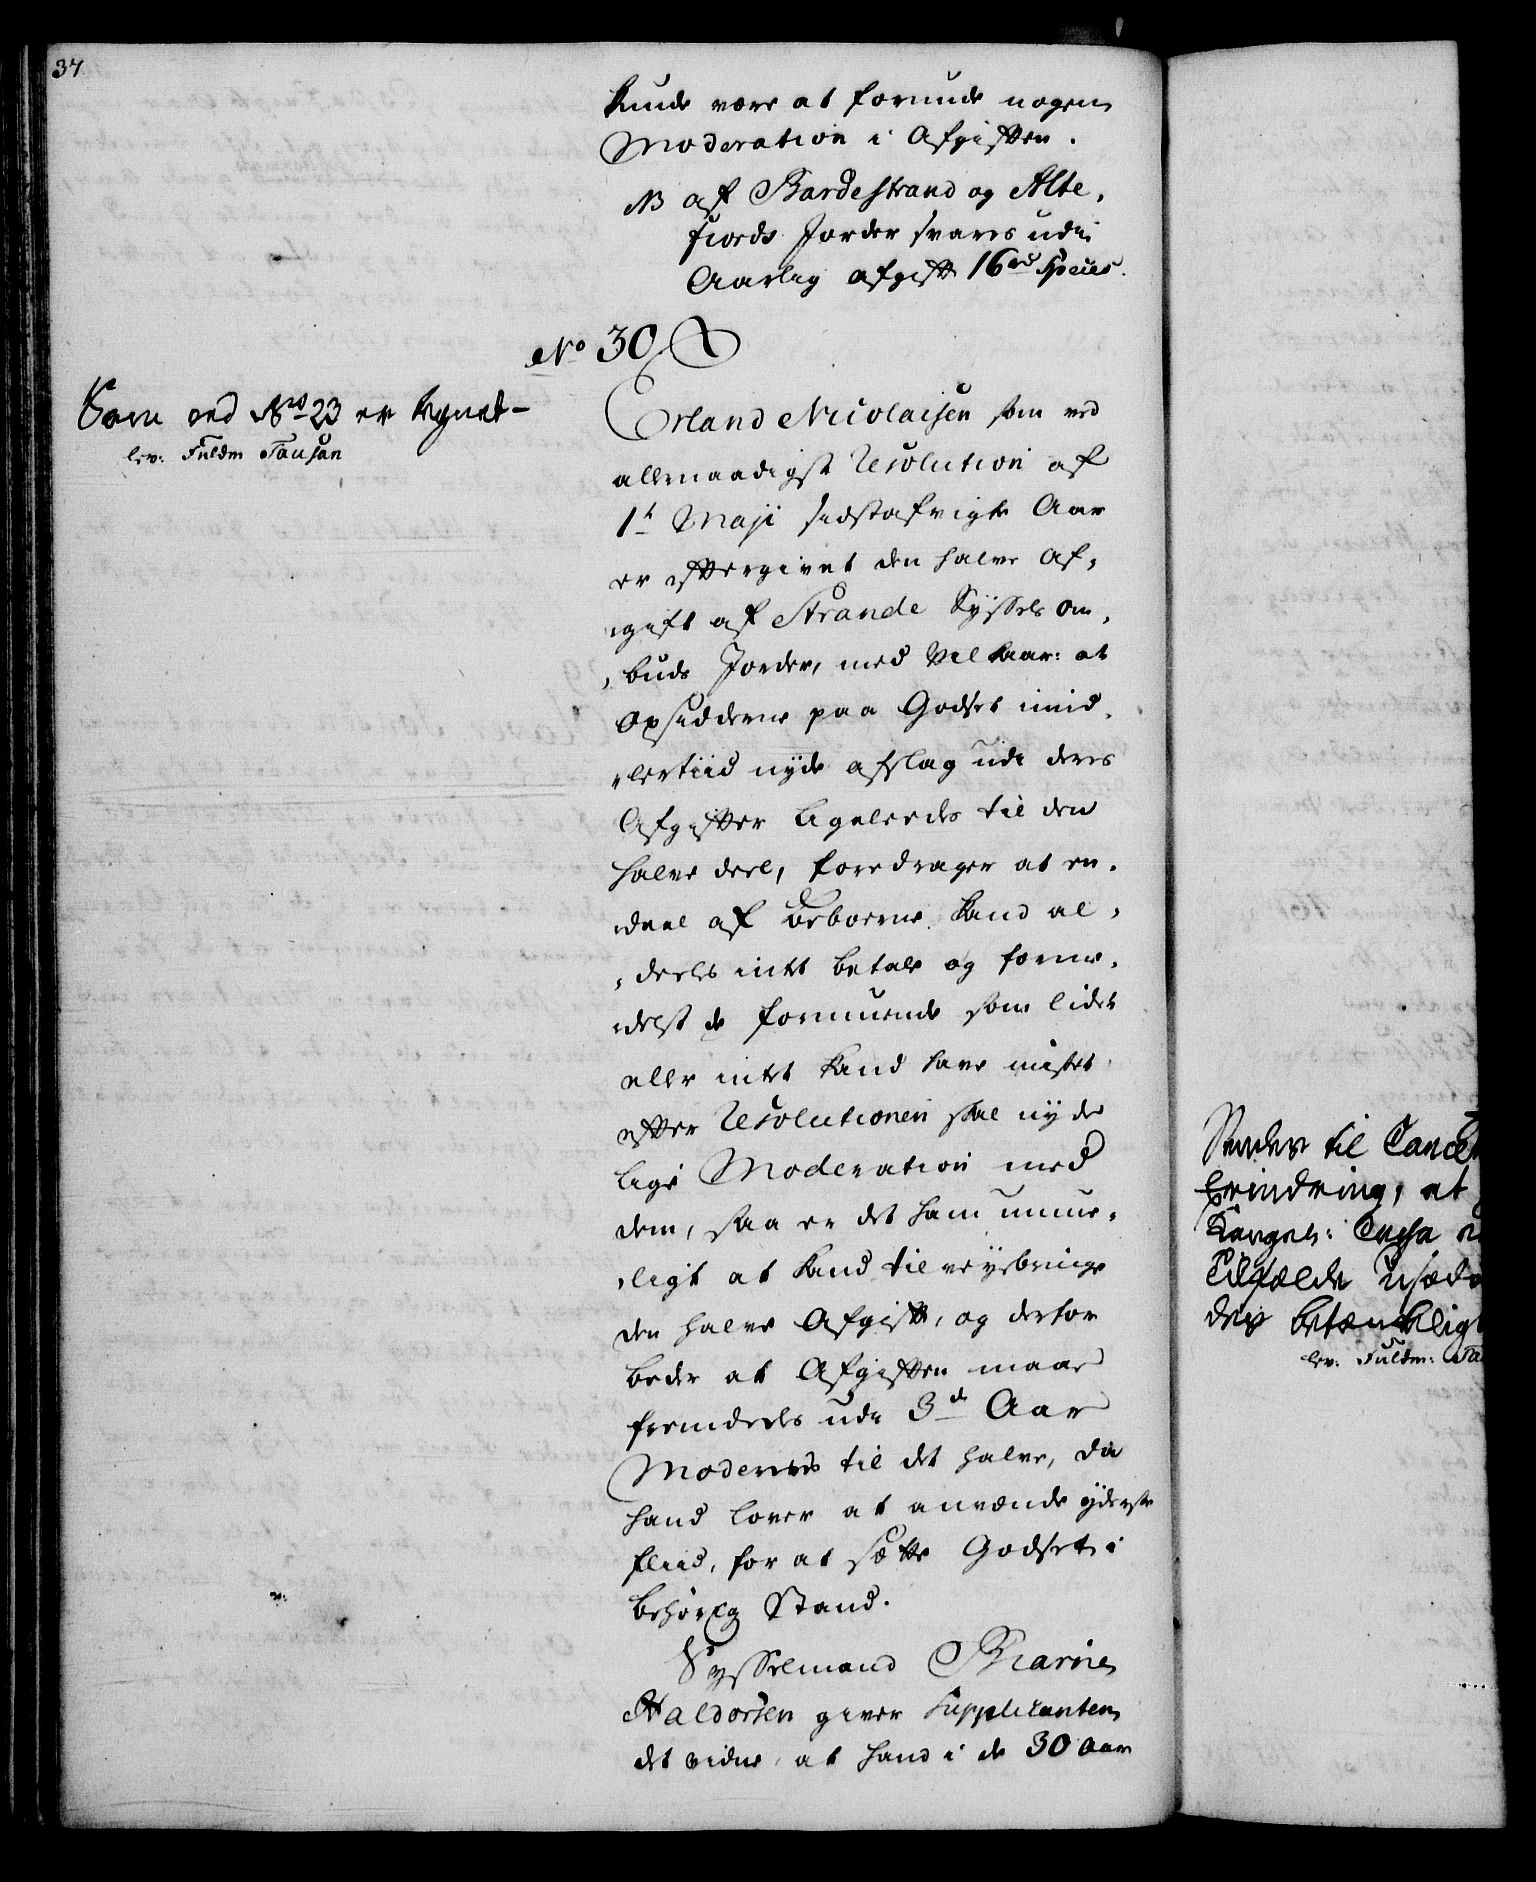 37.
kunde være at forunde nogen
Moderation i Afgiften.
NB af Bardestrand og Alte,
fiords Jorder svares udi
Aarlig afgift 16 rd Species.
No 30
Som ved No 23 er tegnet-
lev: Fuldm Tausan
Erland Nicolaisen som ved
allernaadigst Resolution af
1t Maji sidstafvigte Aar
er eftergivet den halve Af,
gift af Strande Syssels om,
buds Jorder, med Vilkaar: at
Opsidderne paa Godset imid,
lertiid nyde afslag udi deres
Afgifter ligeleedes til den
halve deel, foredrager at en,
deel af Beboerne kand al,
deeles intet betale og forme,
delst de formuende som lidet
eller intet kand have mistet
efter Resolutionen skal nyde
lige Moderation med
dem, saa er det ham umue,
ligt at kand tilvejebringe
den halve Afgift, og derfor
beder at Afgiften maae
fremdeeles udi 3de Aar
Modereres til det halve, da
hand lover at anvende yderste
fliid, for at sætte Godset i
behørig Stand.
Sysselmand Biarne
Haldorsen giver Supplicanten
det vidne, at hand i de 30 Aar
Sendes til Cancel
Erindring, at
Konges: Cassa
Tilfælde
der betænkelig
lev: Fuldm: Ta